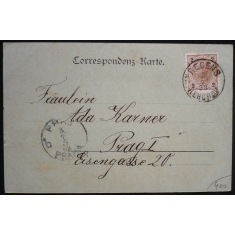 Correspondenz-Karte.
Fräulein
Ida Karner
Prag I
Eisengasse 20.